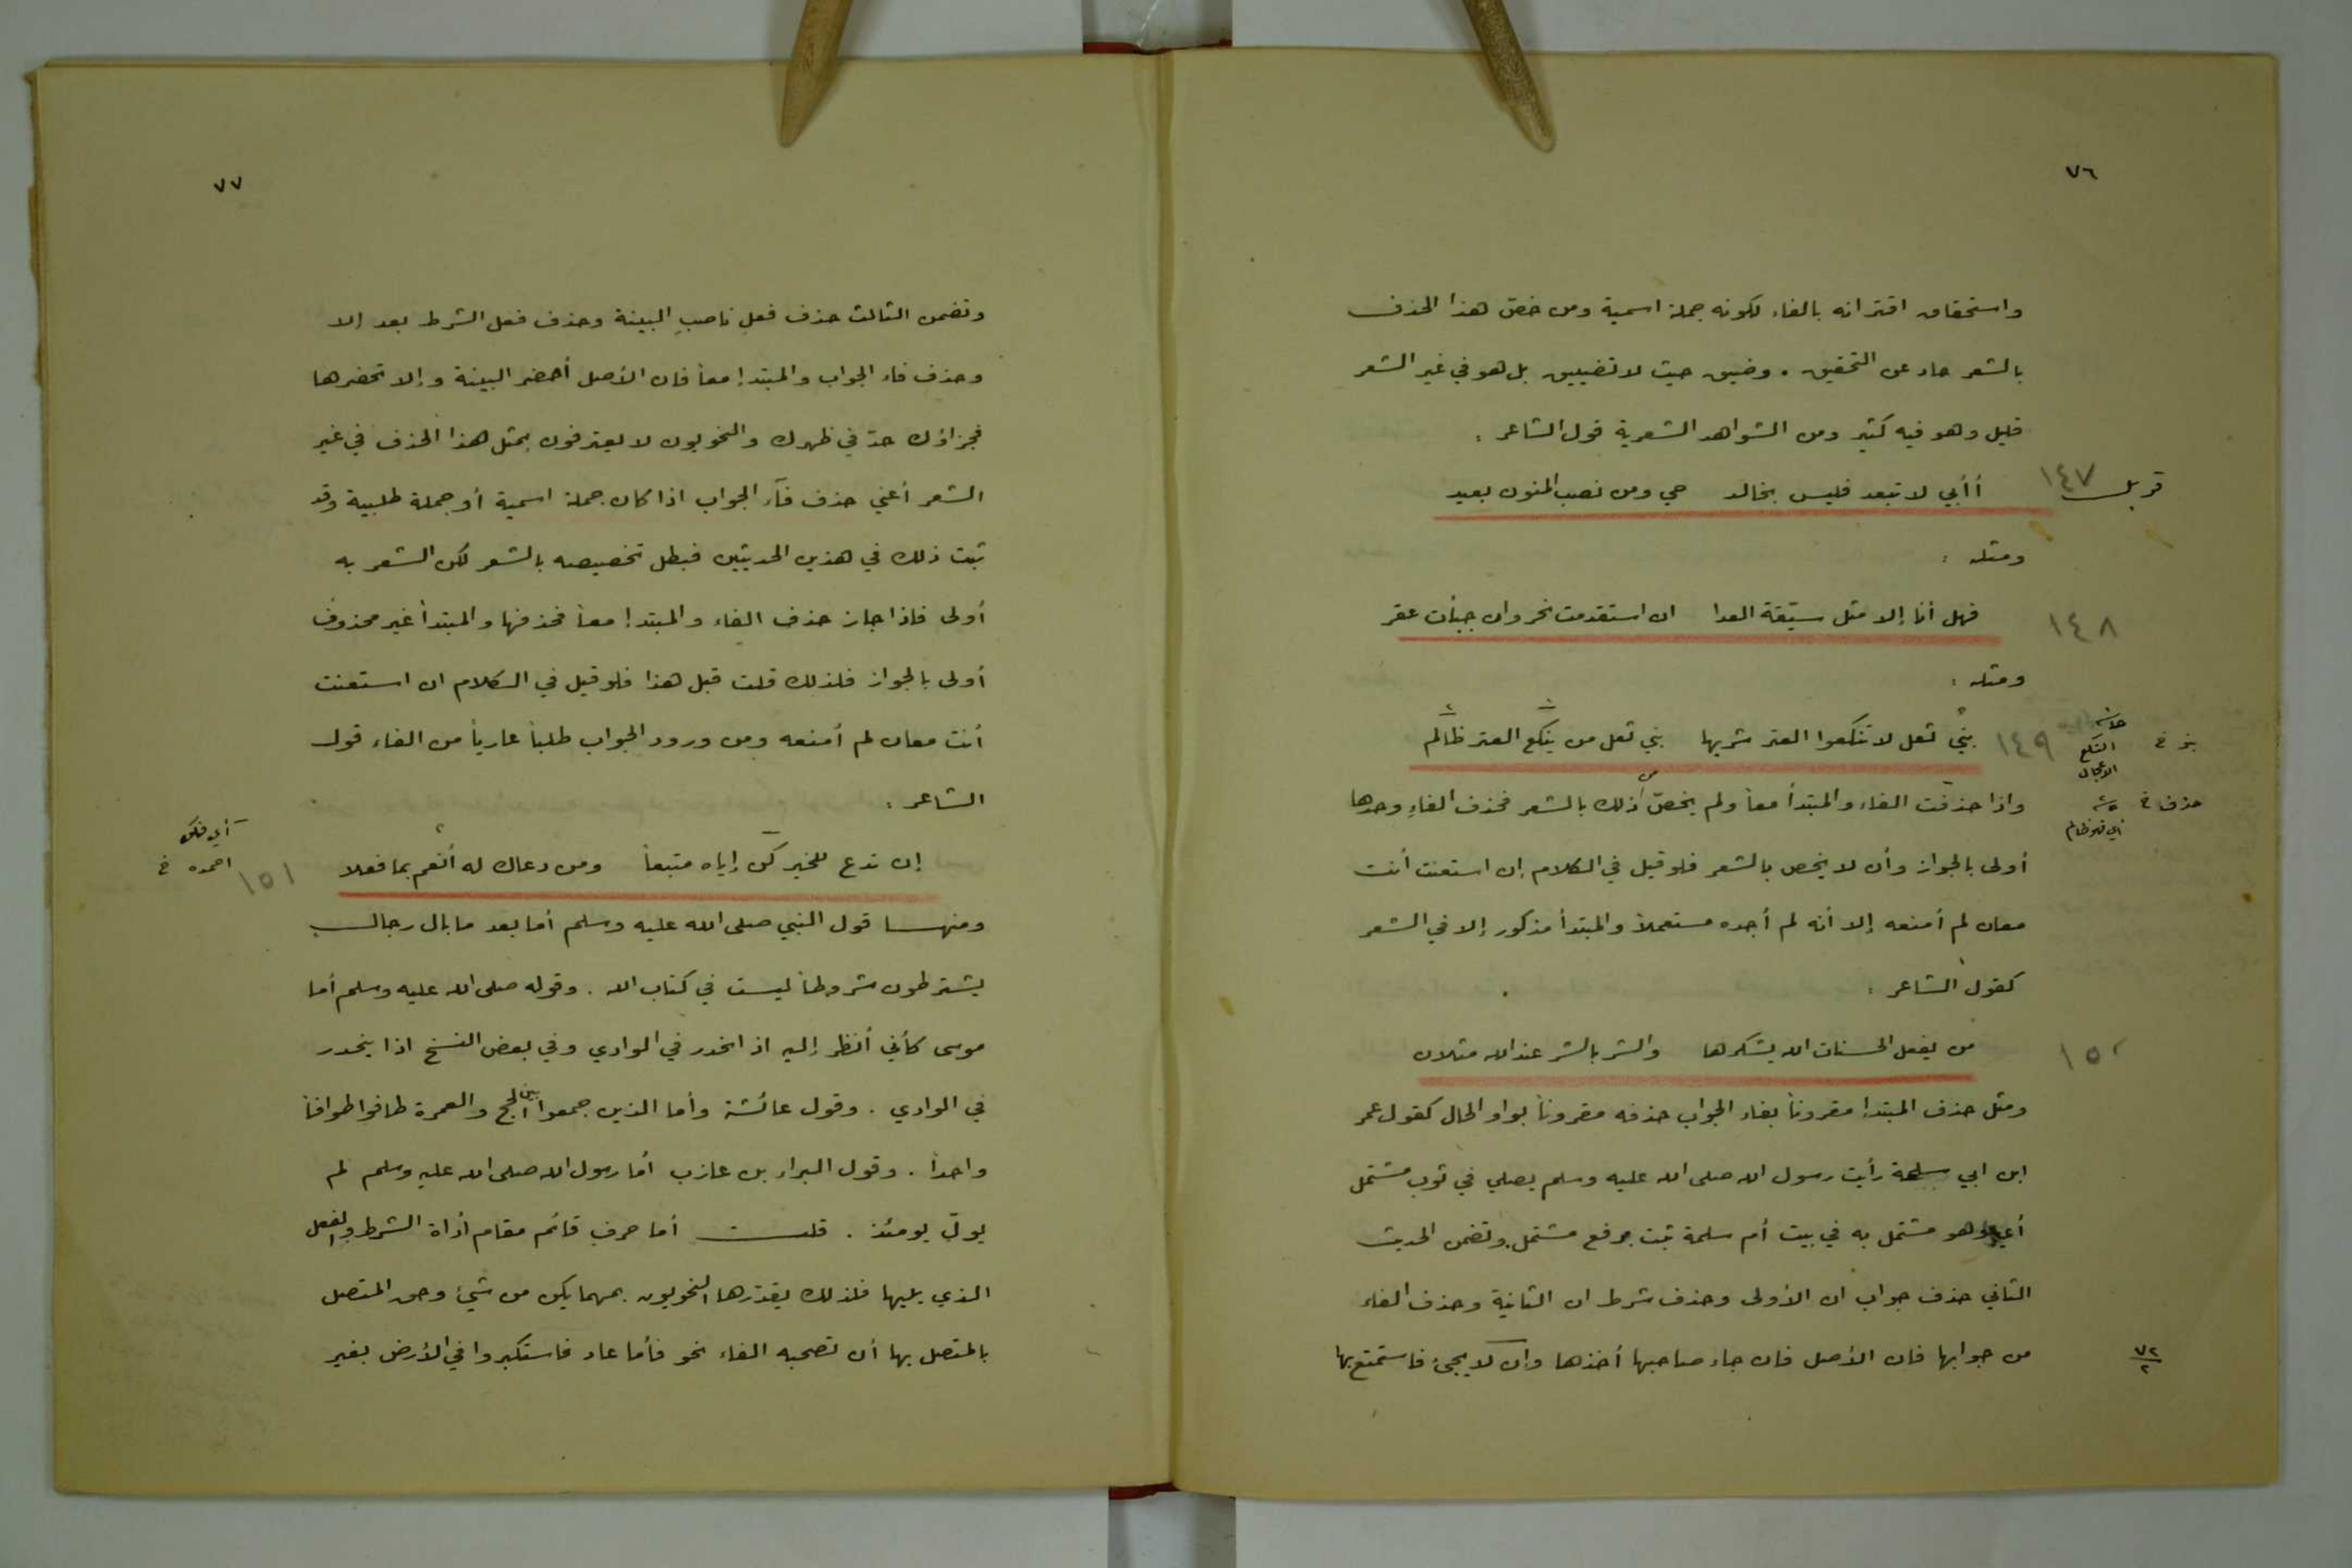 ٧٦
واستحقاق اقترانه بالفاء لكونه جملة اسمية ومن خصّ هذا الحذف
بالشعر حاد عن التحقيق . وضيق حيث لا تضييق بل هو في غير الشعر
قليل وهو فيه كثير ومن الشواهد الشعرية قول الشاعر :
١٤٧ أأبي لا تبعد فليس بخالد حي ومن نصب المنون بعيد
ومثله :
١٤٨ فهل أنا إلا مثل سيّقة العدا ان استقدمت نحر وان جبأت عقر
ومثله :
١٤٩ بني ثعل لا تنكعوا العنز شربها بني ثعل من ينكع العنز ظالم
النكع
الاعجال
واذا حذفت الفاء والمبتدأ معاً ولم يخصّ ذلك بالشعر فحذف الفاءِ وحدها
حذف خ
اي فهو ظالم
أولى بالجواز وأن لا يخص بالشعر فلو قيل في الكلام إن استعنت أنت
معان لم أمنعه إلا أنه لم أجده مستعملاً والمبتدأ مذكور إلا في الشعر
كقول الشاعر :
١٥٠ من يفعل الحسنات الله يشكرها والشر بالشر عند الله مثلان
ومثل حذف المبتدإ مقروناً بفاء الجواب حذفه مقروناً بواو الحال كقول عمر
ابن ابي سلمة رأيت رسول الله صلى الله عليه وسلم يصلي في ثوب مشتمل
أي وهو مشتمل به في بيت أم سلمة ثبت برفع مشتمل وتضمن الحديث
الثاني حذف جواب ان الأولى وحذف شرط ان الثانية وحذف الفاء
من جوابها فان الأصل فان جاء صاحبها أخذها وان لا يجئ فاستمتع بها
٧٢
٢
٧٧
وتضمن الثالث حذف فعلٍ ناصبِ البينة وحذف فعل الشرط بعد إلا
وحذف فاء الجواب والمبتدإ معاً فان الأصل أحضر البينة وإلا تحضرها
فجزاؤك حدّ في ظهرك والنحويون لا يعترفون بمثل هذا الحذف في غير
الشعر أعني حذف فآء الجواب اذا كان جملة اسمية أو جملة طلبية وقد
ثبت ذلك في هذين الحديثين فبطل تخصيصه بالشعر لكن الشعر به
أولى فاذا جاز حذف الفاء والمبتدإ معاً فحذفها والمبتدأ غير محذوف
أولى بالجواز فلذلك قلت قبل هذا فلو قيل في الكلام ان استعنت
أنت معان لم أمنعه ومن ورود الجواب طلباً عارياً من الفاء قول
الشاعر :
إن تدع للخير كن إياه متبعاً ومن دعاك له أنعم بما فعلا ١٥١
أي فكن
احمده خ
ومنها قول النبي صلى الله عليه وسلم أما بعد ما بال رجال
يشترطون شروطاً ليست في كتاب الله . وقوله صلى الله عليه وسلم أما
موسى كأني أنظر إليه اذ انحدر في الوادي وفي بعض النسخ اذا ينحدر
في الوادي . وقول عائشة وأما الذين جمعوا بين الحج والعمرة طافوا طوافاً
واحداً . وقول البراء بن عازب أما رسول الله صلى الله عليه وسلم لم
يولّ يومئذ . قلت أما حرف قائم مقام أداة الشرط والفعل
الذي يليها فلذلك يقدّرها النحويون بمهما يكن من شيئ وحق المتصل
بالمتصل بها أن تصحبه الفاء نحو فأما عاد فاستكبروا في الأرض بغير